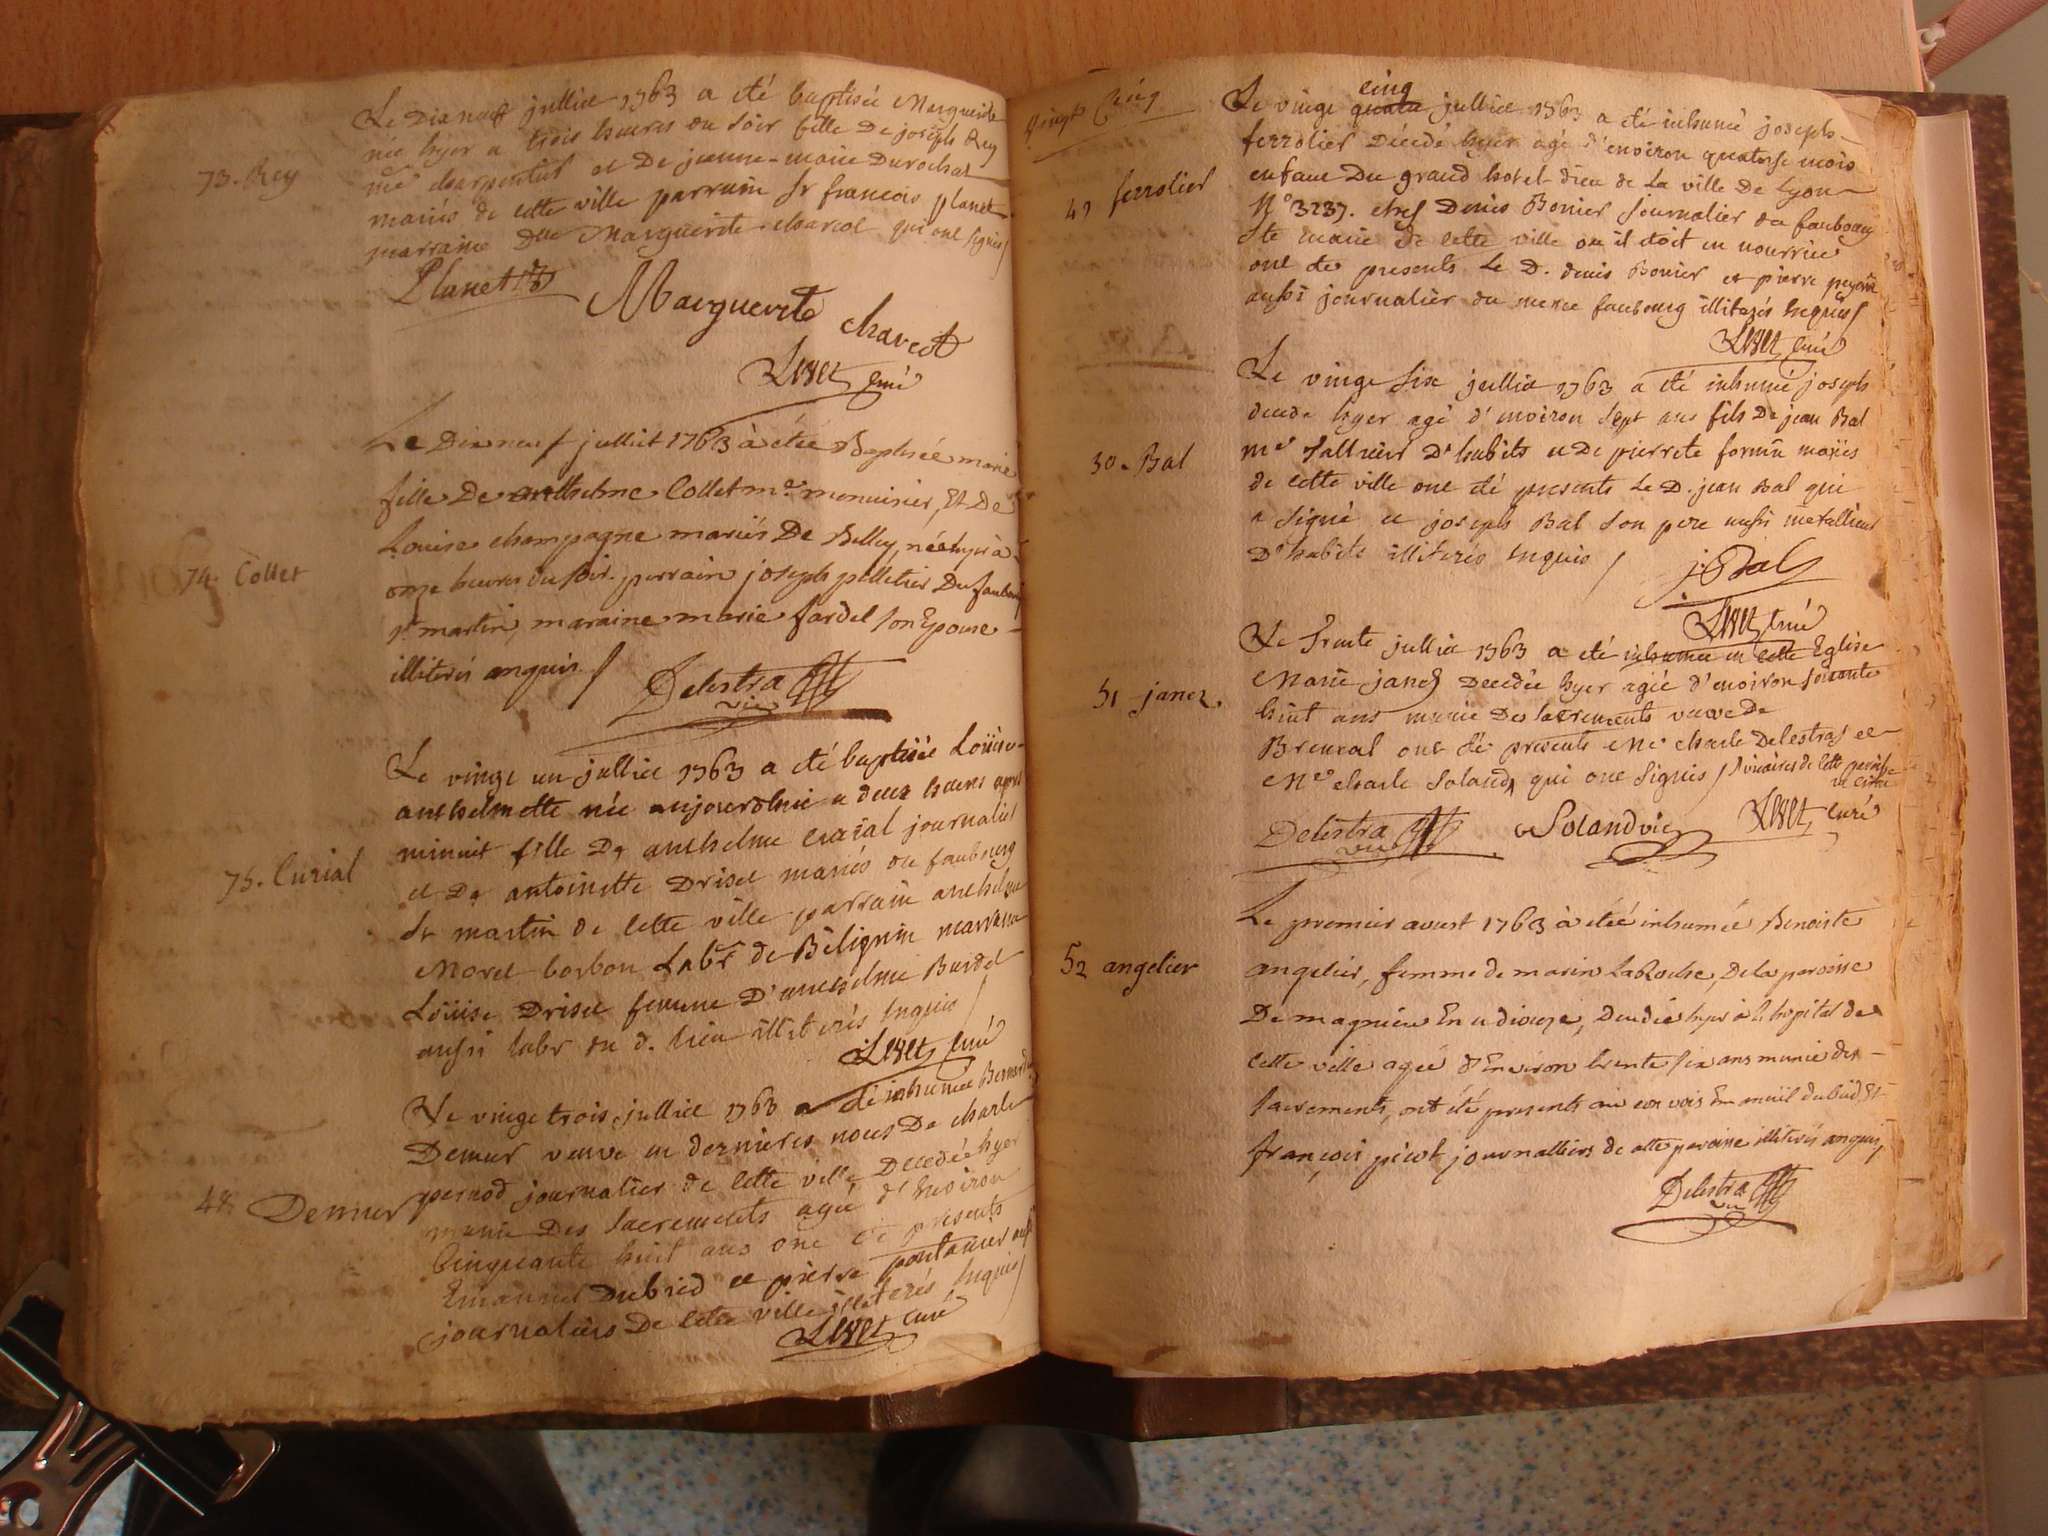 Le Dix neuf julliet 1763 a été baptisée Marguerite
née hyer a trois heures du soir fille De joseph Rey
73. Rey
me charpentier et De jeanne-marie Durochat
mariés de cette ville parrain Sr francois planet
marraine Dlle Marguerite charcot qui ont signés
Planet
Marguerite charcot
curé
Le Dix neuf julliet 1763 à étée Baptisée marie
fille De anthelme Collet me. menuisier, Et De
Louise champagne mariés De Belley, née hyer à
74. Collet
onze heures du soir. parrain joseph pelletier Du faubourg
st martin, maraine marie fardel son Epouse
illiterés enquis
Delestra vic
Le vingt un julliet 1763 a été baptisée Loüise
anthelmette née aujourdhuie a deux heures apres
minuit fille De anthelme curial journalier
75. Curial
et De antoinette Driset mariés du faubourg
St martin de cette ville parrain anthelme
Morel borbon Labr de Bélignin marraine
Loüise Driset femme D'anthelme Burdet
aussi labr du d. lieu illiterés Enquis
curé
Le vingt trois julliet 1763 a été inhumée Bernardine
Demur veuve en dernieres noces De charle
48. Demur
pernod journalier de cette ville Decedée hyer
munie Des sacrements agée d'Environ
Cinquante huit ans ont été présents
Emanuel Dubied et pierre pontanier aussi
journaliers De cette ville illiterés Enquis
curé
Vingt Cinq
Le vingt quatre cinq julliet 1763 a été inhumé joseph
ferrolier Décédé hyer agé d'environ quatorse mois
49 ferrolier
enfant Du grand hotel dieu de La ville De Lyon
No 3237. chés Denis Bonier Journalier du faubourg
Ste marie de cette ville ou il étoit en nourrice
ont été presents Le D. denis Bonier et pierre
aussi journalier du meme faubourg illiterés Enquis
curé
Le vingt six julliet 1763 a été inhumé joseph
decedé hyer agé d'environ sept ans fils De jean Bal
50. Bal
me Tallieur D'habits et De pierrette mariés
de cette ville ont été presents Le D. jean Bal qui
a signé et joseph Bal son pere aussi me tallieur
D'habits illiterés Enquis
j Bal
curé
Le Trente julliet 1763 a été inhumée en cette Eglise
Marie janez Decedée hyer agée d'environ soixante
51 janez.
huit ans munie Des sacrements veuve De
Breneral ont été presents Mre charle Delestraz et
Mre charle Soland, qui ont signés / vicaires de cette paroisse
Delestra vic Soland vic curé
Le premier aoust 1763 à étée inhumée Benoiste
52 angelier
angelier, femme de marin LaRoche, De la paroisse
De magnieu En ce dioceze, Decedée hyer à l'hopital de
cette ville agée d'Environ trente six ans munie des
sacrements, ont été presents au convois Emanüel dubied, Et
françois picot journalliers de cette paroisse illiterés enquis,
Delestra vic